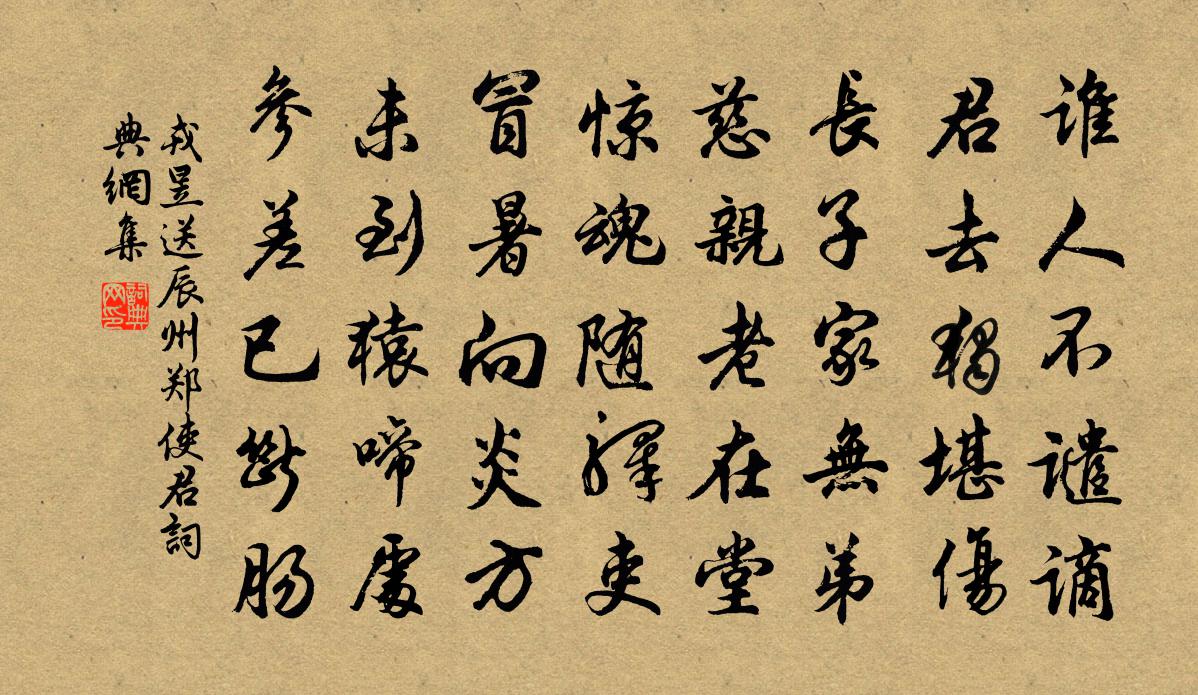 谁人不谴謫
君去獨堪傷
長子家無弟
慈親老在堂
惊魂随驛吏
冒暑向炎方
未到猿啼處
參差已斷肠
戎昱送辰州郑使君詞
典網集
詞典网印